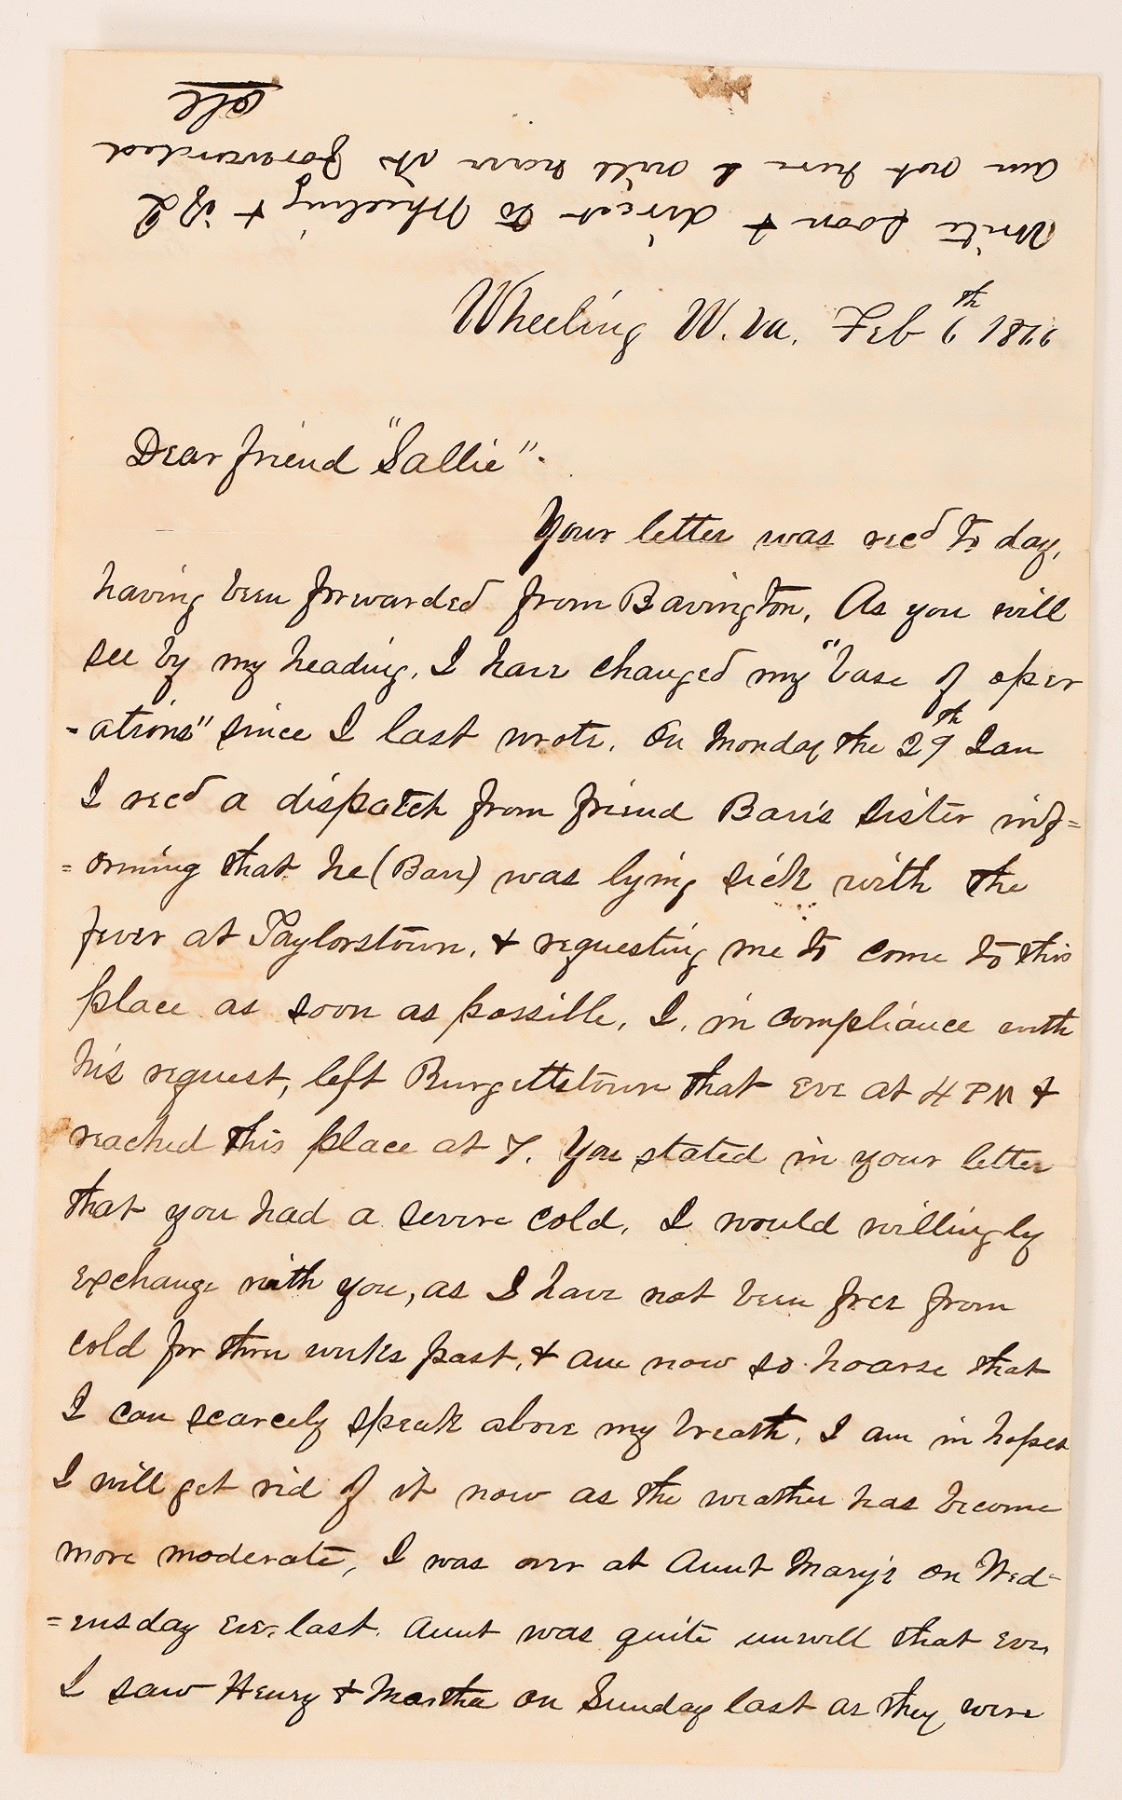 Write soon & direct to Wheeling & if I
am not here I will have it forwarded
Wheeling W. Va. Feb 6th 1866
Dear friend "Sallie".
Your letter was recd to day,
having been forwarded from Bavington. As you will
see by my heading, I have changed my "base of oper
-ations" since I last wrote. On Monday the 29th Jan
I recd a dispatch from friend Bar's sister inf=
=orming that he (Bar) was lying sick with the
fever at Taylorstown, & requesting me to come to this
place as soon as possible, I, in compliance with
his request, left Burgettstown that eve at 4 PM &
reached this place at 7. You stated in your letter
that you had a severe cold, I would willingly
exchange with you, as I have not been free from
cold for three weeks past, & am now so hoarse that
I can scarcely speak above my breath, I am in hopes
I will get rid of it now as the weather has become
more moderate, I was over at Aunt Mary's on Wed-
=ensday eve. last. Aunt was quite unwell that eve,
I saw Henry & Martha on Sunday last as they were